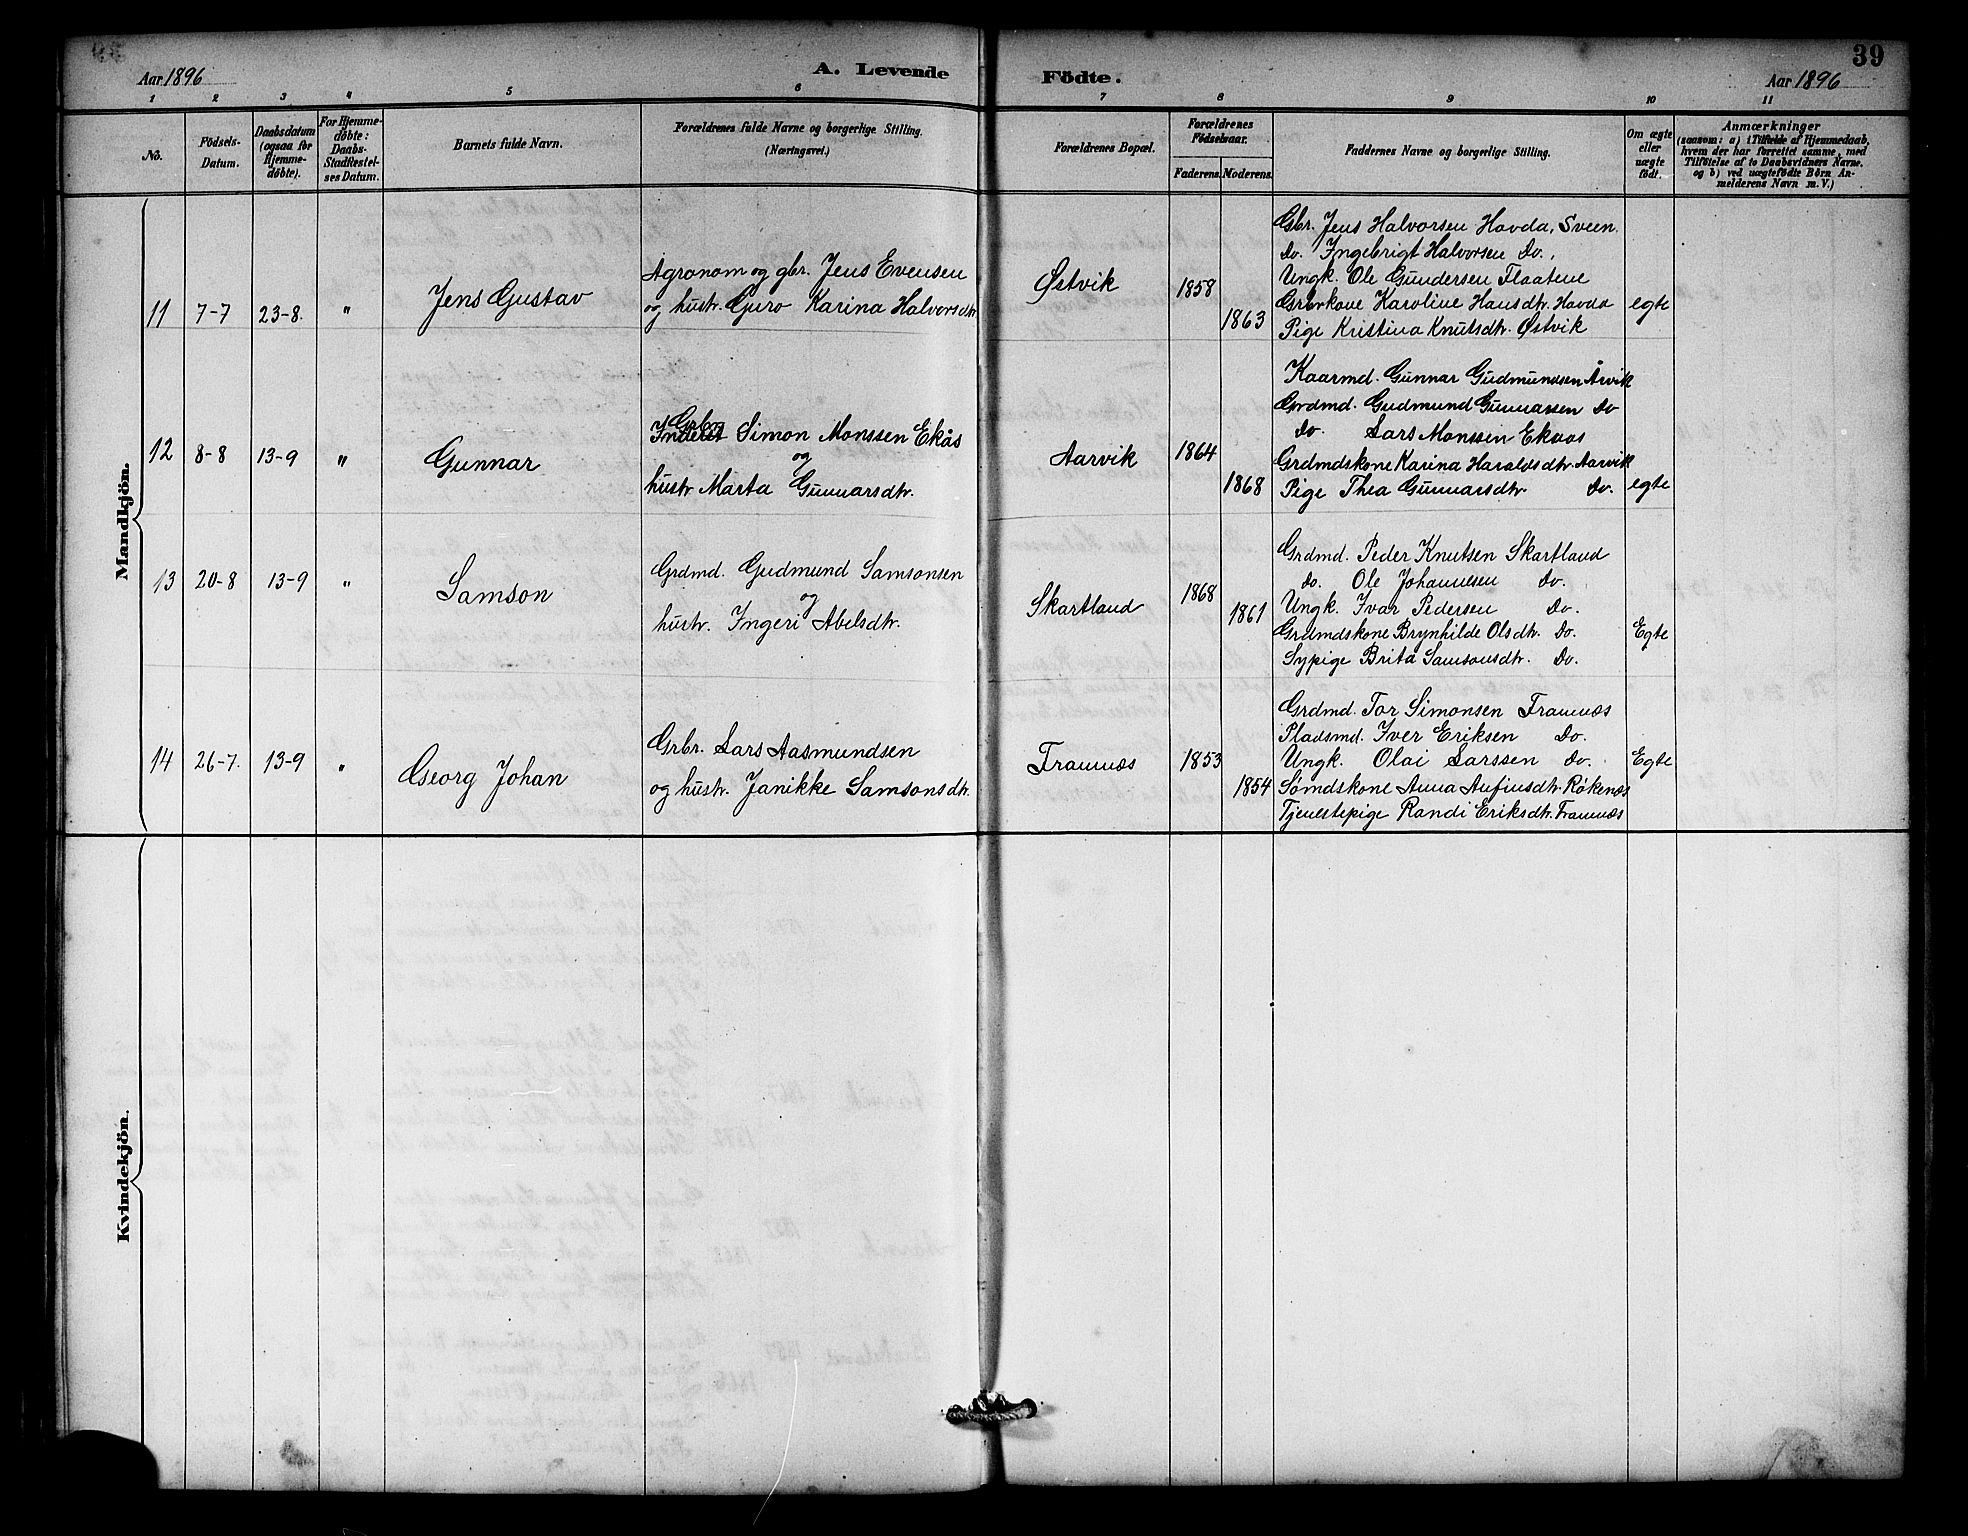 39
Aar 1896
A. Levende Födte.
Aar 1896
1 2 3 4 5 6 7 8 9 10 11
No.
Födsels-
Datum.
Daabsdatum
(ogsaa for
Hjemme-
döbte).
For Hjemme-
döbte:
Daabs-
Stadfestel-
ses Datum.
Barnets fulde Navn.
Forældrenes fulde Navne og borgerlige Stilling.
(Næringsvei.)
Forældrenes Bopæl.
Forældrenes
Födselsaar.
Faderens. Moderens.
Faddernes Navne og borgerlige Stilling.
Om ægte
eller
uægte
født.
Anmærkninger
(saasom: a) i Tilfælde af Hjemmedaab,
hvem der har forrettet samme, med
Tilföielse af to Daabsvidners Navne,
og b) ved uægtefödte Börn An-
melderens Navn m. V.)
Mandkjön.
11 7-7 23-8. "
Jens Gustav
Agronom og gbr. Jens Evensen
og hustr. Guro Karina Halvorsdtr.
Østvik
1858
1863
Gbr. Jens Halvorsen Hovda, Sveen.
do. Ingebrigt Halvorsen do.,
Ungk. Ole Gundersen Flaatene
Grbrkone Karoline Hansdtr. Hovda
Pige Kristina Knutsdtr. Østvik
egte
12 8-8 13-9 "
Gunnar
Grbr.
Simon Monssen Ekås
og
hustr. Marta Gunnarsdtr.
Aarvik
1864
1868
Kaarmd. Gunnar Gudmundsen Årvik
Grdmd. Gudmund Gunnarsen do
do. Lars Monssen Ekaas
Grdmdskone Karina Haraldsdtr. Aarvik
Pige Thea Gunnarsdtr. do.
egte
13 20-8 13-9 "
Samson
Grdmd. Gudmund Samsonsen
og
hustr. Ingeri Abelsdtr.
Skartland
1868
1861
Grdmd. Peder Knutsen Skartland
do. Ole Johannesen do.
Ungk. Ivar Pedersen do.
Grdmdskone Brynhilde Olsdtr. do.
Sypige Brita Samsonsdtr. do.
Egte
14 26-7. 13-9 "
Georg Johan
Grbr. Lars Aasmundsen
og hustr. Janikke Samsonsdtr.
Framnæs
1853
1854
Grdmd. Tor Simonsen Framnæs
Pladsmd. Iver Eriksen do.
Ungk. Olai Larssen do.
Sømdskone Anna Anfinsdtr. Røkenæs
Tjenestepige Randi Eriksdtr. Framnæs
Egte
Kvindekjön.